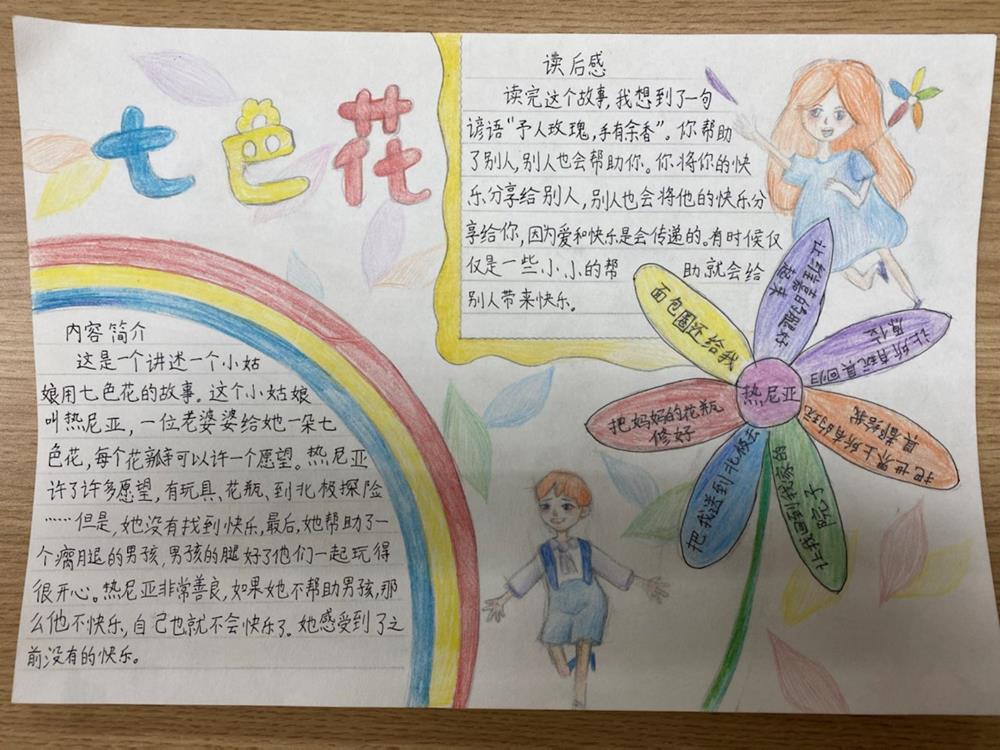 七色花
读后感
读完这个故事,我想到了一句
谚语“予人玫瑰,手有余香”。你帮助
了别人,别人也会帮助你。你将你的快
乐分享给别人,别人也会将他的快乐分
享给你,因为爱和快乐是会传递的。有时候仅
仅是一些小小的帮助就会给
别人带来快乐。
内容简介
这是一个讲述一个小姑
娘用七色花的故事。这个小姑娘
叫热尼亚,一位老婆婆给她一朵七
色花,每个花瓣可以许一个愿望。热尼亚
许了许多愿望,有玩具、花瓶、到北极探险
……但是,她没有找到快乐,最后,她帮助了一
个瘸腿的男孩,男孩的腿好了他们一起玩得
很开心。热尼亚非常善良,如果她不帮助男孩,那
么他不快乐,自己也就不会快乐了。她感受到了之
前没有的快乐。
面包圈还给我
把妈妈的花瓶
修好
把我送到北极去
让我回到我家的
院子
把世界上所有的玩
具都给我
让所有玩具回归
原位
的腿好
起来
热尼亚